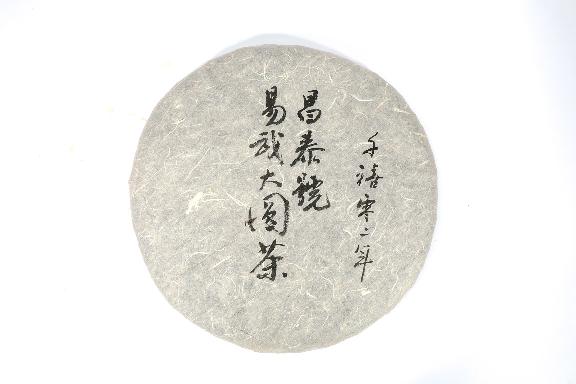 千禧零二年
昌泰號
易武大圓茶